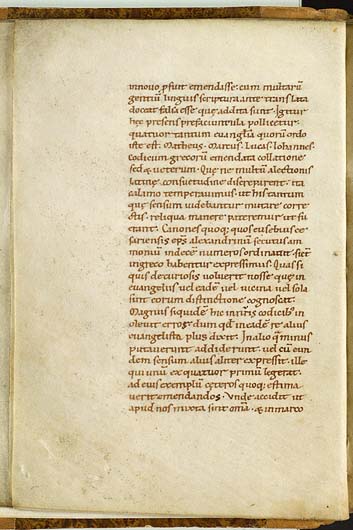 innovo ꝓfuit emendasse · cum multarū
gentiū linguis scriptura ante translata
doceat falsa esse quę addita sunt · Igitur
hęc presens prefaciuncula pollicetur
quattuor tantum euanglia quorū ordo
iste est · Matheus · Marcus · Lucas · Iohannes ·
codicum grecorū emendata collatione
sed & ueterum · Que ne multū a lectionis
latinę consuetudine discreparent · ita
calamo temperauimus · ut his tantum
quę sensum uidebantur mutare corre
ctis · reliqua manere pateremur ut fu
erant · Canones quoq; quos eusebius ce
sariensis ep̄s alexandrinū secutus am
monium indecē numeros ordinauit · sicut
ingreco habentur expressimus · Quas si
quis de curiosis uoluerit nosse · quę in
euangeliis uel eadē · uel uicina · uel sola
sint eorum distinctione cognoscat ·
Magnus siquidē hic in nr̄is codicibꝰ in
oleuit error · dum qd̄ in eadē re alius
euangelista plus dixit · In alio q̄a minus
putauerunt addiderunt · uel cū eun
dem sensum alius aliter expressit · ille
qui unū ex quattuor primū legerat ·
ad eius exemplū cęteros quoq; estima
uerit emendandos · Unde accidit ut
apud nos mixta sint om̄ia · & in marco